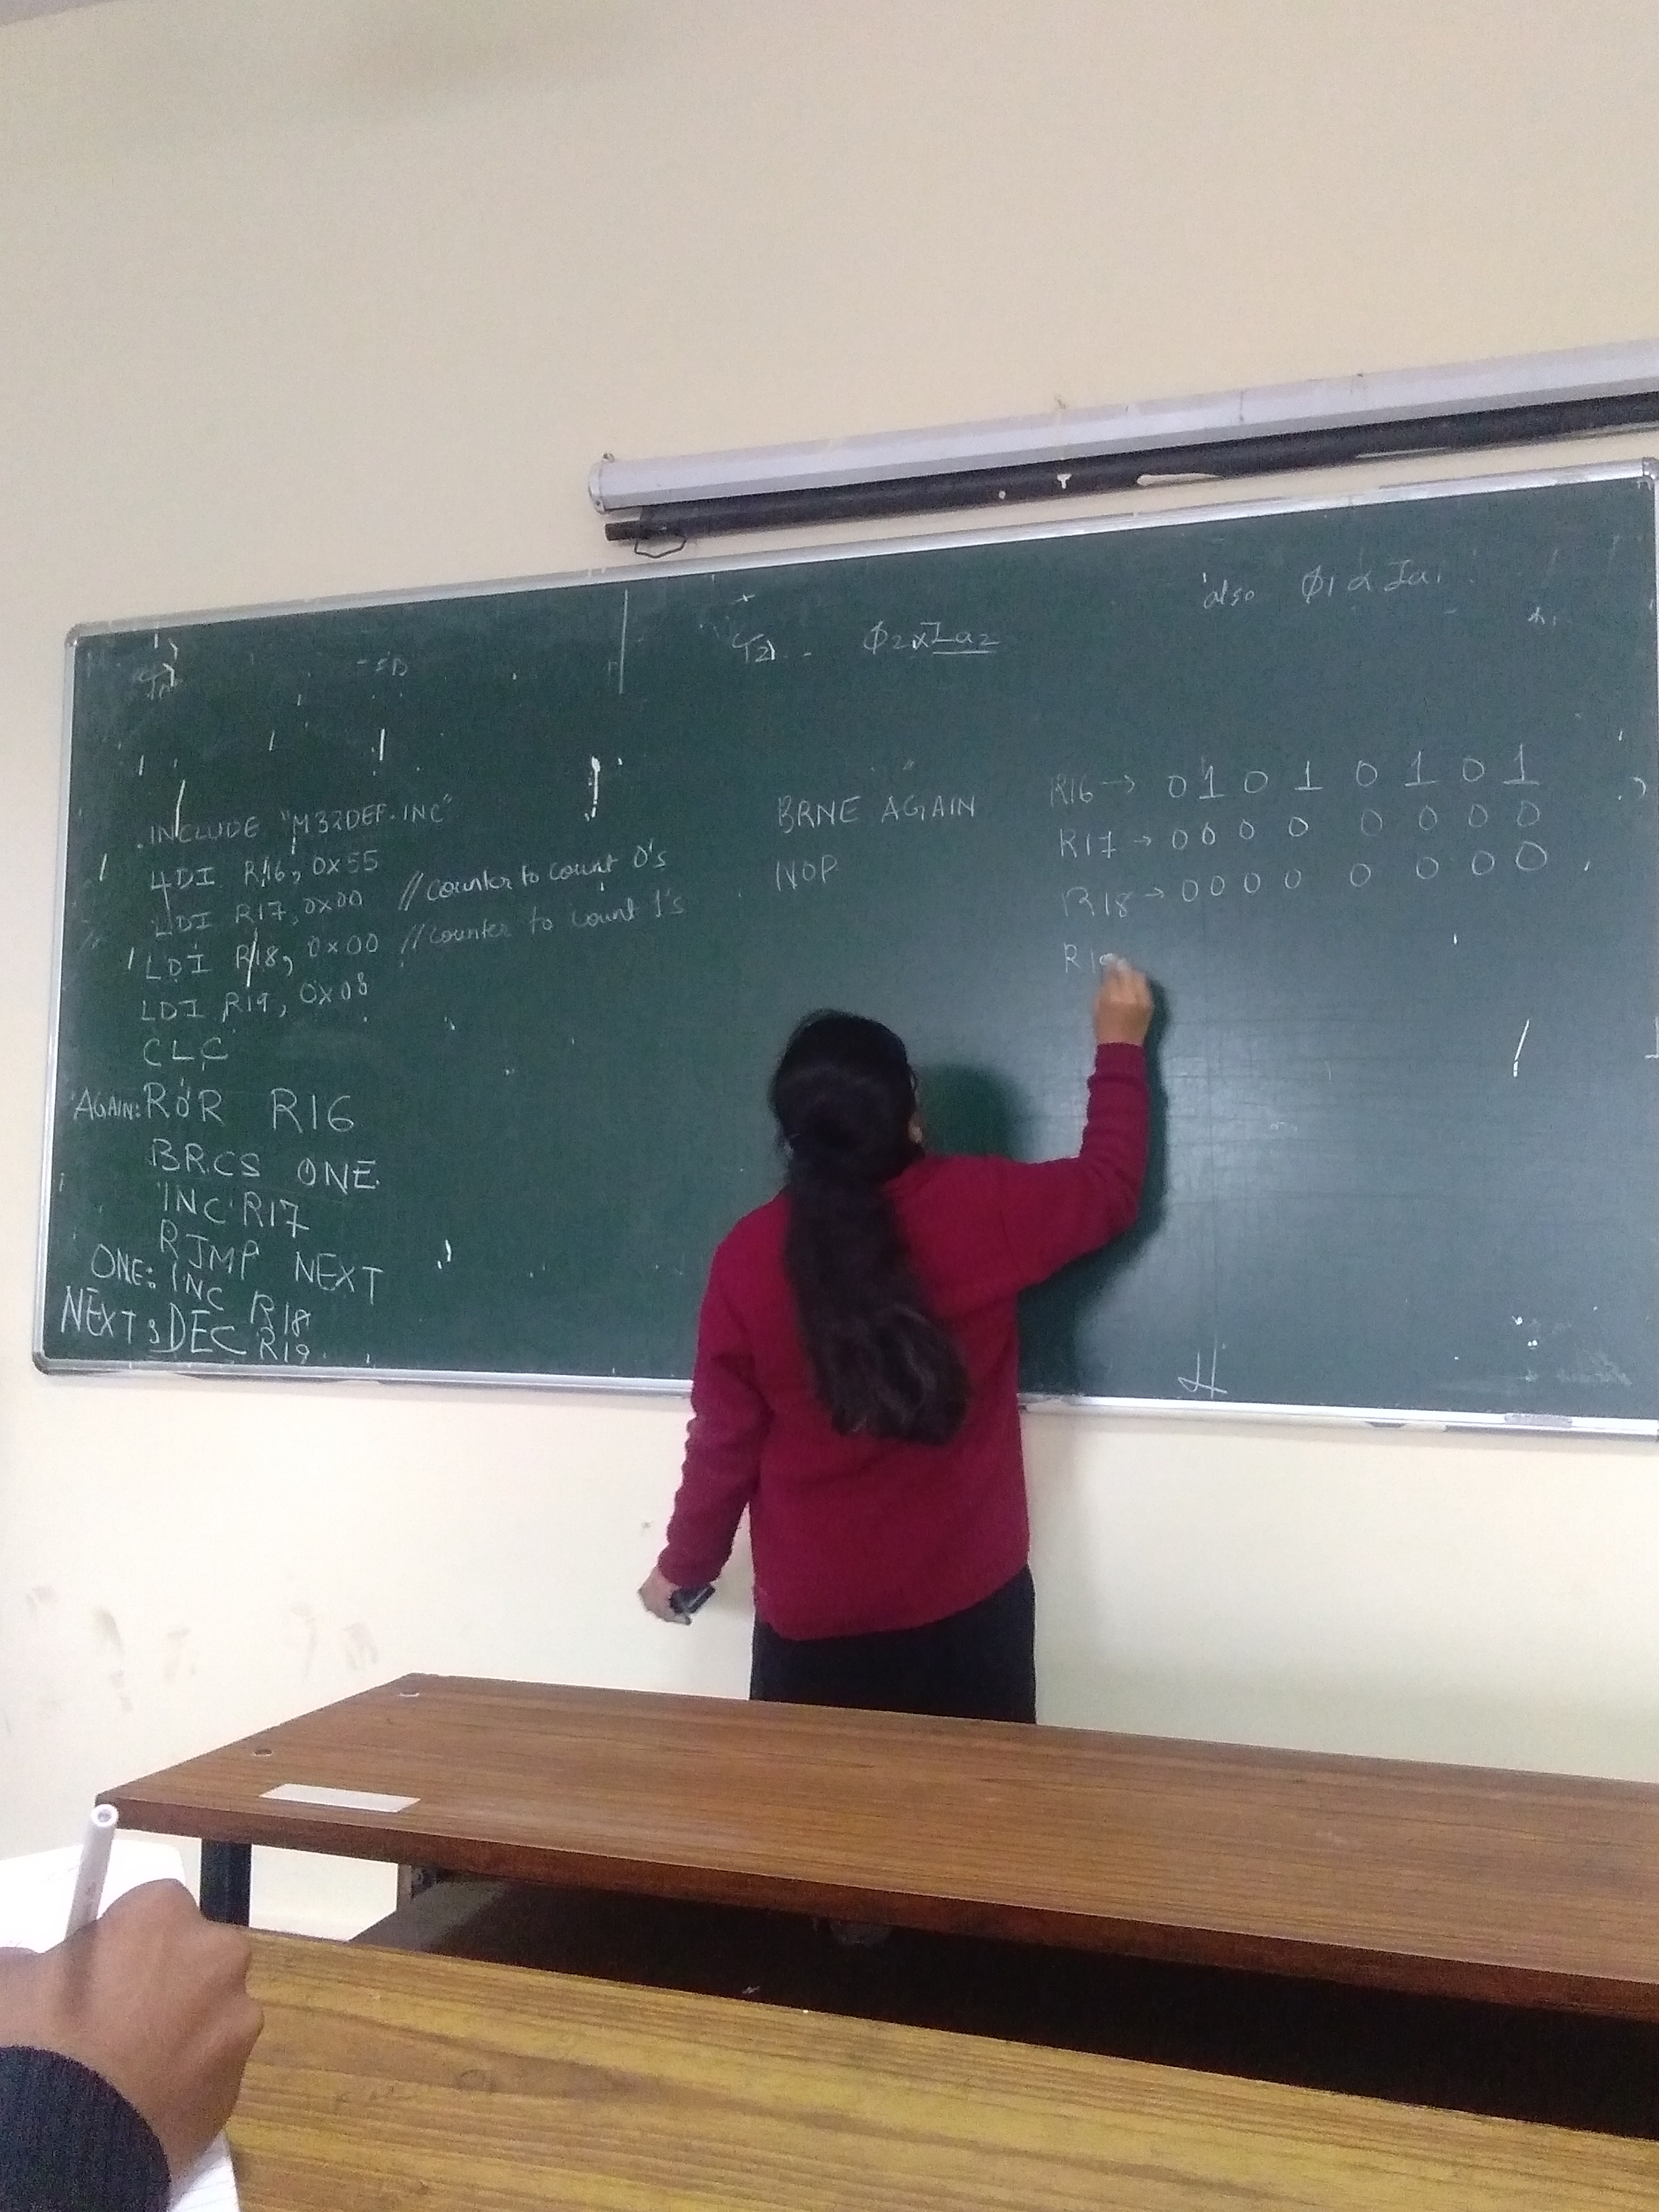 also Φ1 α Ia1
Φ2 α Ia2
.INCLUDE "M32DEF.INC"
LDI R16, 0x55
LDI R17, 0x00 //counter to count 0's
LDI R18, 0x00 //counter to count 1's
LDI R19, 0x08
CLC
AGAIN: ROR R16
BRCS ONE
INC R17
RJMP NEXT
ONE: INC R18
NEXT: DEC R19
BRNE AGAIN
NOP
R16 → 0 1 0 1 0 1 0 1
R17 → 0 0 0 0 0 0 0 0
R18 → 0 0 0 0 0 0 0 0